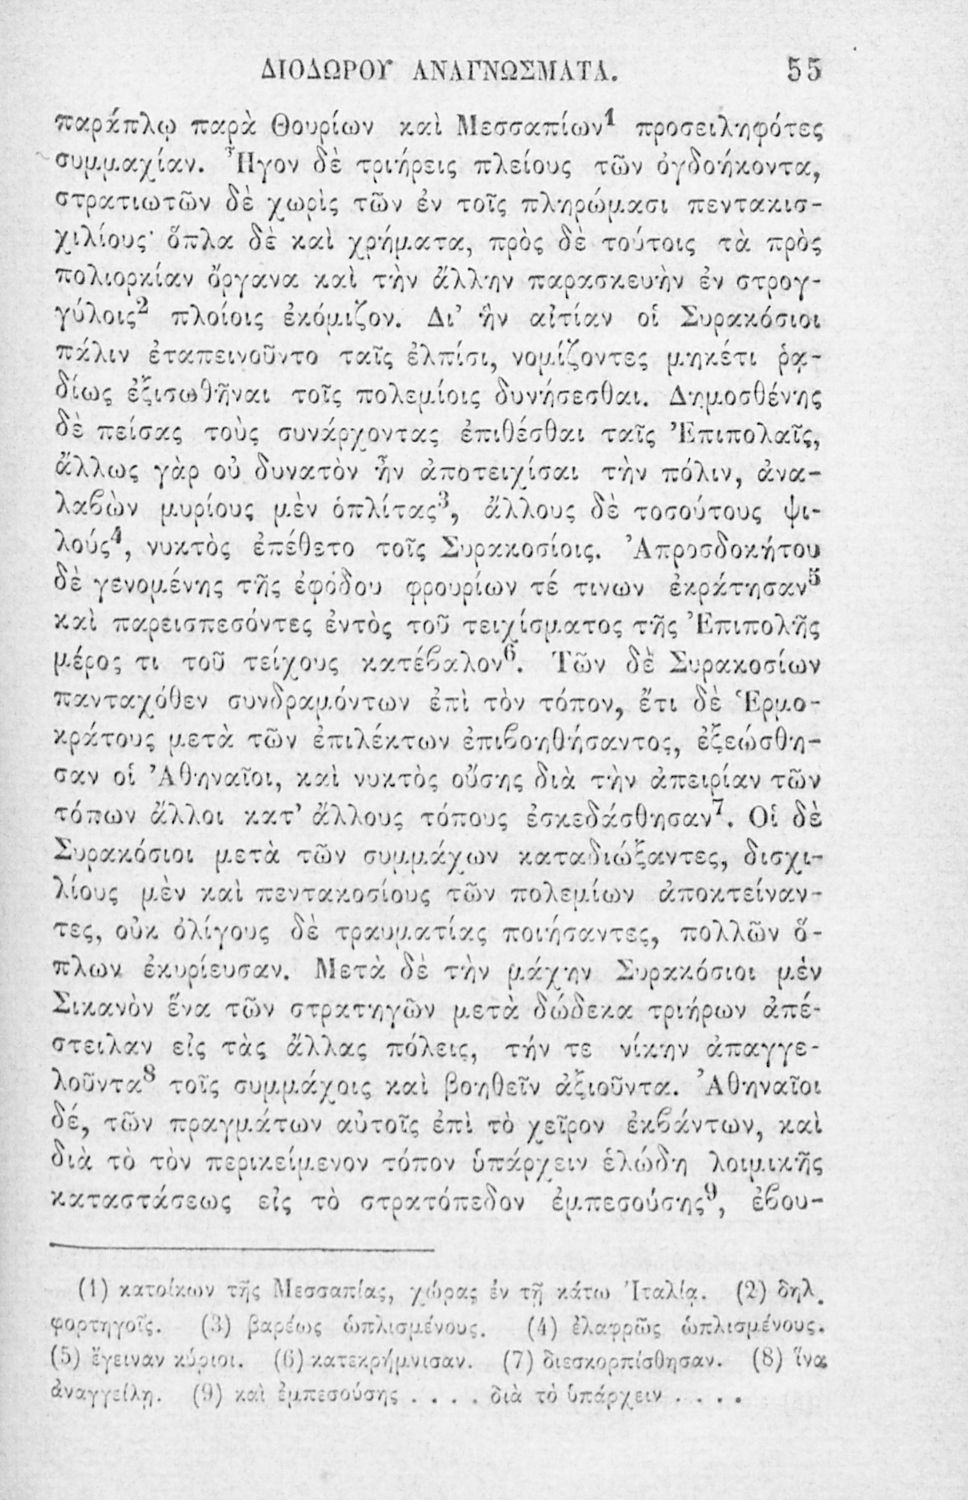 ΔΙΟΔΩΡΟΥ ΑΝΑΓΝΩΣΜΑΤΑ. 55
παράπλῳ παρὰ Θουρίων καὶ Μεσσαπίων¹ προσειληφότες
συμμαχίαν. Ἦγον δὲ τριήρεις πλείους τῶν ὀγδοήκοντα,
στρατιωτῶν δὲ χωρὶς τῶν ἐν τοῖς πληρώμασι πεντακισ-
χιλίους· ὅπλα δὲ καὶ χρήματα, πρὸς δὲ τούτοις τὰ πρὸς
πολιορκίαν ὄργανα καὶ τὴν ἄλλην παρασκευὴν ἐν στρογ-
γύλοις² πλοίοις ἐκόμιζον. Δι’ ἣν αἰτίαν οἱ Συρακόσιοι
πάλιν ἐταπεινοῦντο ταῖς ἐλπίσι, νομίζοντες μηκέτι ῥᾳ-
δίως ἐξισωθῆναι τοῖς πολεμίοις δυνήσεσθαι. Δημοσθένης
δὲ πείσας τοὺς συνάρχοντας ἐπιθέσθαι ταῖς Ἐπιπολαῖς,
ἄλλως γὰρ οὐ δυνατὸν ἦν ἀποτειχίσαι τὴν πόλιν, ἀνα-
λαβὼν μυρίους μὲν ὁπλίτας³, ἄλλους δὲ τοσούτους ψι-
λούς⁴, νυκτὸς ἐπέθετο τοῖς Συρακοσίοις. Ἀπροσδοκήτου
δὲ γενομένης τῆς ἐφόδου φρουρίων τέ τινων ἐκράτησαν⁵
καὶ παρεισπεσόντες ἐντὸς τοῦ τειχίσματος τῆς Ἐπιπολῆς
μέρος τι τοῦ τείχους κατέβαλον⁶. Τῶν δὲ Συρακοσίων
πανταχόθεν συνδραμόντων ἐπὶ τὸν τόπον, ἔτι δὲ Ἑρμο-
κράτους μετὰ τῶν ἐπιλέκτων ἐπιβοηθήσαντος, ἐξεώσθη-
σαν οἱ Ἀθηναῖοι, καὶ νυκτὸς οὔσης διὰ τὴν ἀπειρίαν τῶν
τόπων ἄλλοι κατ’ ἄλλους τόπους ἐσκεδάσθησαν⁷. Οἱ δὲ
Συρακόσιοι μετὰ τῶν συμμάχων καταδιώξαντες, δισχι-
λίους μὲν καὶ πεντακοσίους τῶν πολεμίων ἀποκτείναν-
τες, οὐκ ὀλίγους δὲ τραυματίας ποιήσαντες, πολλῶν ὅ-
πλων ἐκυρίευσαν. Μετὰ δὲ τὴν μάχην Συρακόσιοι μὲν
Σικανὸν ἕνα τῶν στρατηγῶν μετὰ δώδεκα τριήρων ἀπέ-
στειλαν εἰς τὰς ἄλλας πόλεις, τήν τε νίκην ἀπαγγε-
λοῦντα⁸ τοῖς συμμάχοις καὶ βοηθεῖν ἀξιοῦντα. Ἀθηναῖοι
δέ, τῶν πραγμάτων αὐτοῖς ἐπὶ τὸ χεῖρον ἐκβάντων, καὶ
διὰ τὸ τὸν περικείμενον τόπον ὑπάρχειν ἑλώδη λοιμικῆς
καταστάσεως εἰς τὸ στρατόπεδον ἐμπεσούσης⁹, ἐβου-
(1) κατοίκων τῆς Μεσσαπίας, χώρας ἐν τῇ κάτω Ἰταλίᾳ. (2) δηλ.
φορτηγοῖς. (3) βαρέως ὡπλισμένους. (4) ἐλαφρῶς ὡπλισμένους.
(5) ἔγειναν κύριοι. (6) κατεκρήμνισαν. (7) διεσκορπίσθησαν. (8) ἵνα
ἀναγγείλῃ. (9) καὶ ἐμπεσούσης . . . . διὰ τὸ ὑπάρχειν . . . .